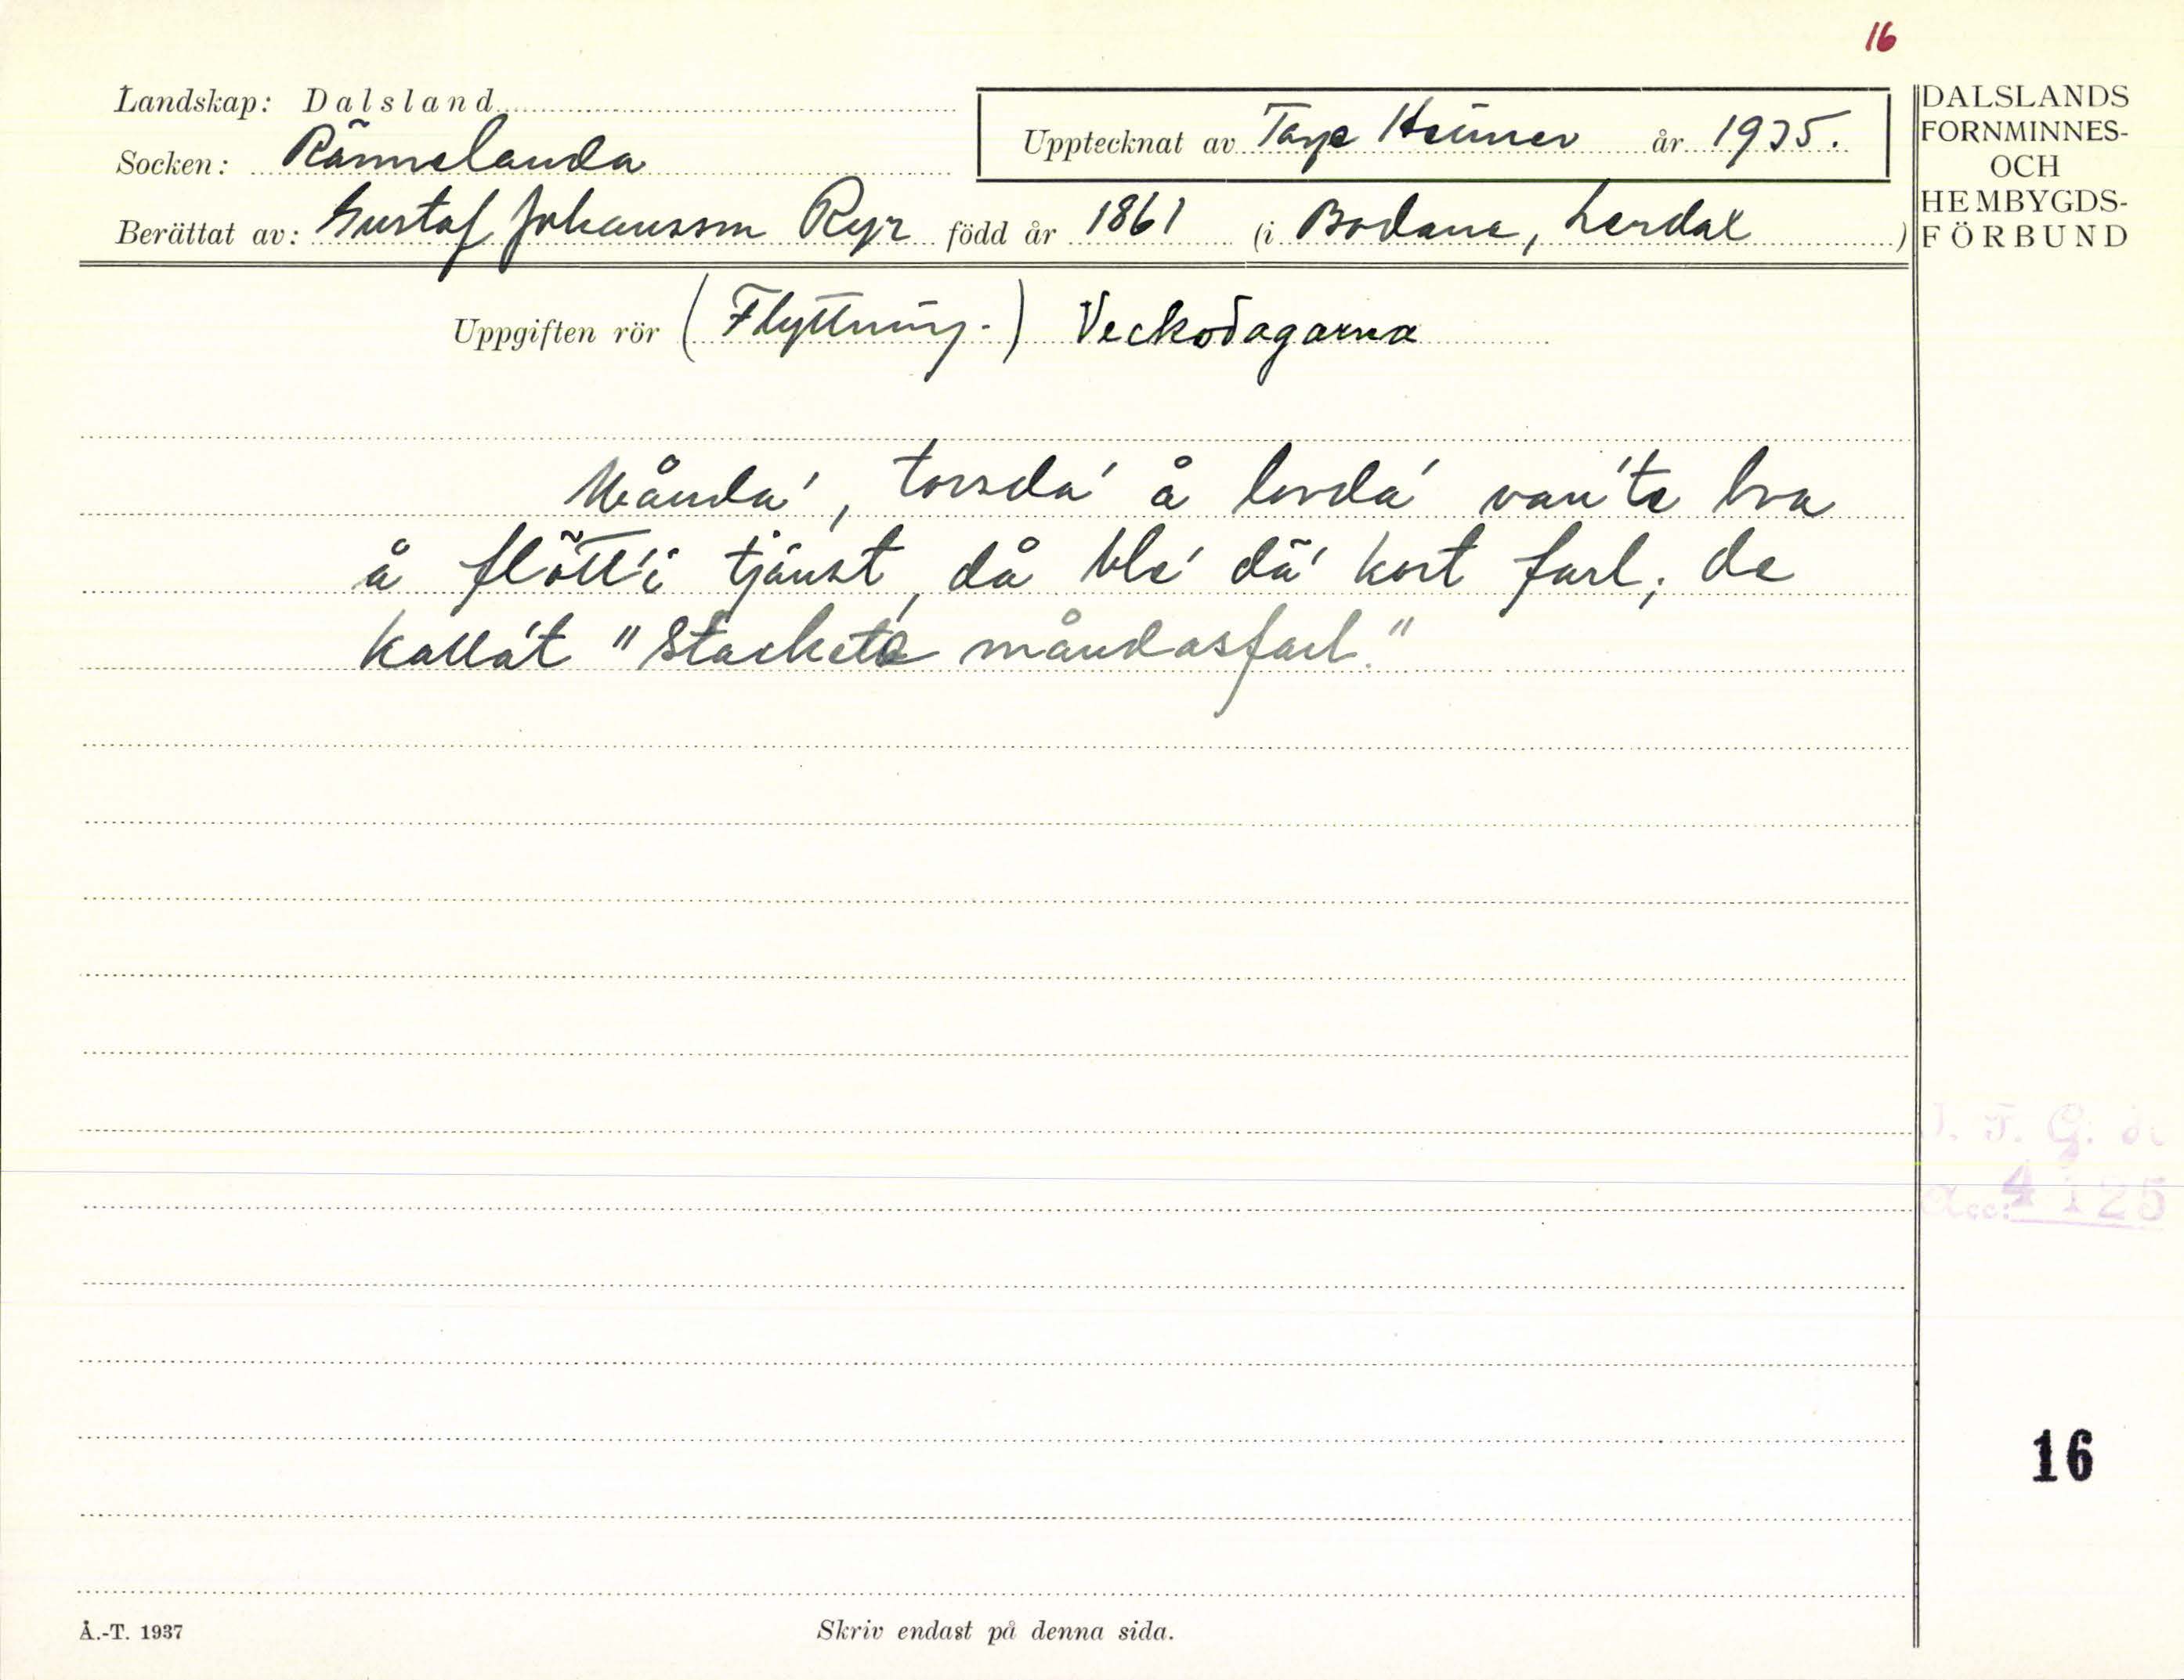 16
Landskap: Dalsland
Upptecknat av Tage Heimer år 1935.
Socken: Rännelanda
Berättat av: Gustaf Johansson Ryr född år 1861 (i Bodane, Lerdal)
DALSLANDS
FORNMINNES-
OCH
HEMBYGDS-
FÖRBUND
Uppgiften rör (Flyttning.) Veckodagarna
Månda', torsda' å lörda' van'te bra
å flött'i tjänst, då ble' dä' kort farl; de
kalla't "Stackete måndasfarl."
4125
16
Å.-T. 1937
Skriv endast på denna sida.